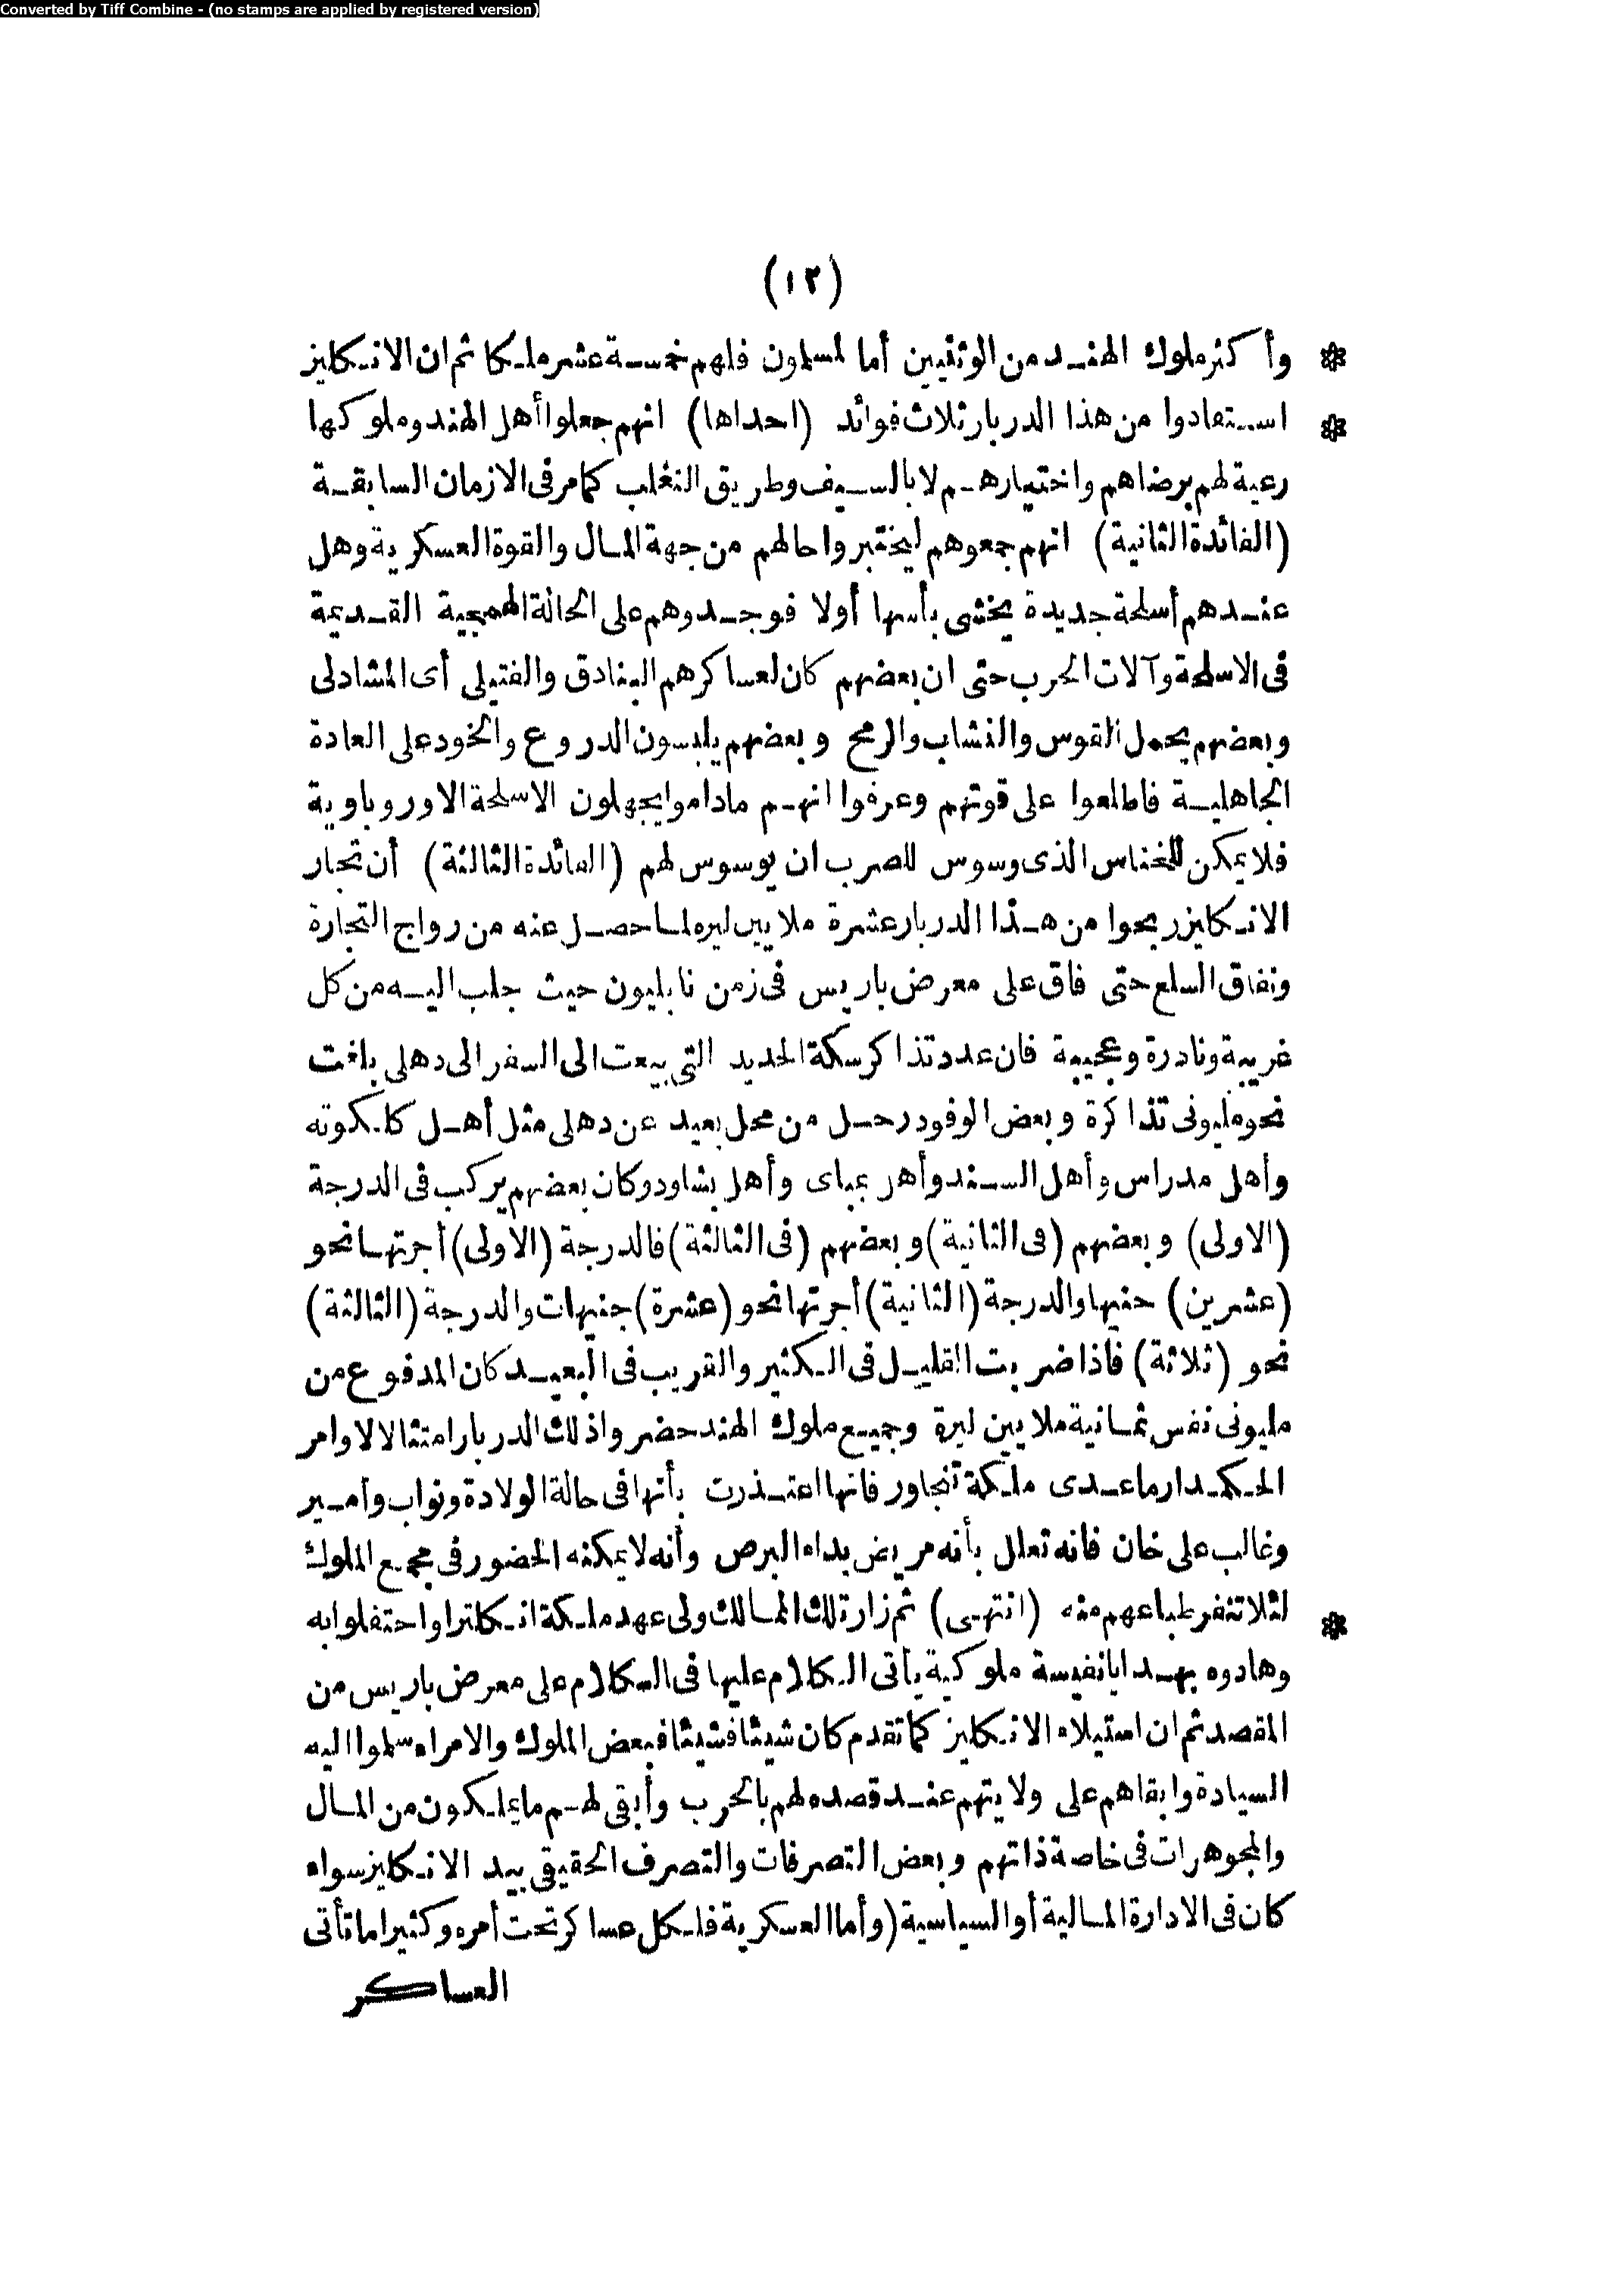 Converted by Tiff Combine - (no stamps are applied by registered version)
(١٢)
* وأكثر ملوك الهند من الوثنيين أما لمسلمون فلهم خمسة عشر ملكا ثم ان الانكليز
* استفادوا من هذا الدربار ثلاث فوائد (احداها) انهم جعلوا أهل الهند وملوكها
رعية لهم برضاهم واختيارهم لا بالسيف وطريق التغلب كما مر فى الازمان السابقة
(الفائدة الثانية) انهم جمعوهم ليختبروا حالهم من جهة المال والقوة العسكرية وهل
عندهم أسلحة جديدة يخشى بأسها أولا فوجدوهم على الحالة الهمجية القديمة
فى الاسلحة وآلات الحرب حتى ان بعضهم كان لعساكرهم البنادق والفتيلى أى المشادلى
وبعضهم يحمل القوس والنشاب والرمح وبعضهم يلبسون الدروع والخود على العادة
الجاهلية فاطلعوا على قوتهم وعرفوا انهم ماداموا يجهلون الاسلحة الاوروباوية
فلا يمكن للخناس الذى وسوس للصرب ان يوسوس لهم (الفائدة الثالثة) أن تجار
الانكليز ربحوا من هذا الدربار عشرة ملايين ليره لما حصل عنه من رواج التجارة
ونفاق السلع حتى فاق على معرض باريس فى زمن نابليون حيث جلب اليه من كل
غريبة ونادرة وعجيبة فان عدد تذاكر سكة الحديد التى بيعت الى السفر الى دهلى بلغت
نحو مليونى تذاكرة وبعض الوفود رحل من محل بعيد عن دهلى مثل أهل كلكوته
وأهل مدراس وأهل السند وأهر بمباى وأهل بشاور وكان بعضهم يركب فى الدرجة
(الاولى) وبعضهم (فى الثانية) وبعضهم (فى الثالثة) فالدرجة (الاولى) أجرتها نحو
(عشرين) جنيها والدرجة (الثانية) أجرتها نحو (عشرة) جنيهات والدرجة (الثالثة)
نحو (ثلاثة) فاذا ضربت القليل فى الكثير والقريب فى البعيد كان المدفوع من
مليونى نفس ثمانية ملايين ليرة وجميع ملوك الهند حضروا ذلك الدربار امتثالا لاوامر
الحكمدار ماعدى ملكة تنجاور فانها اعتذرت بأنها فى حالة الولادة ونواب وأمير
وغالب على خان فانه تعلل بأنه مريض بداء البرص وأنه لا يمكنه الحضور فى مجمع الملوك
* لئلا تنفر طباعهم منه (انتهى) ثم زار تلك الممالك ولى عهد ملكة انكلترا واحتفلوا به
وهادوه بهدايا نفيسة ملوكية يأتى الكلام عليها فى الكلام على معرض باريس من
المقصد ثم ان استيلاء الانكليز كما تقدم كان شيئا فشيئا فبعض الملوك والامراء سلموا اليه
السيادة وابقاهم على ولايتهم عند قصده لهم بالحرب وأبقى لهم ما يملكون من المال
والمجوهرات فى خاصة ذاتهم وبعض التصرفات والتصرف الحقيقى بيد الانكليز سواء
كان فى الادارة المالية أو السياسية (وأما العسكرية فلكل عساكر تحت أمره وكثيرا ما تأتى
العساكر